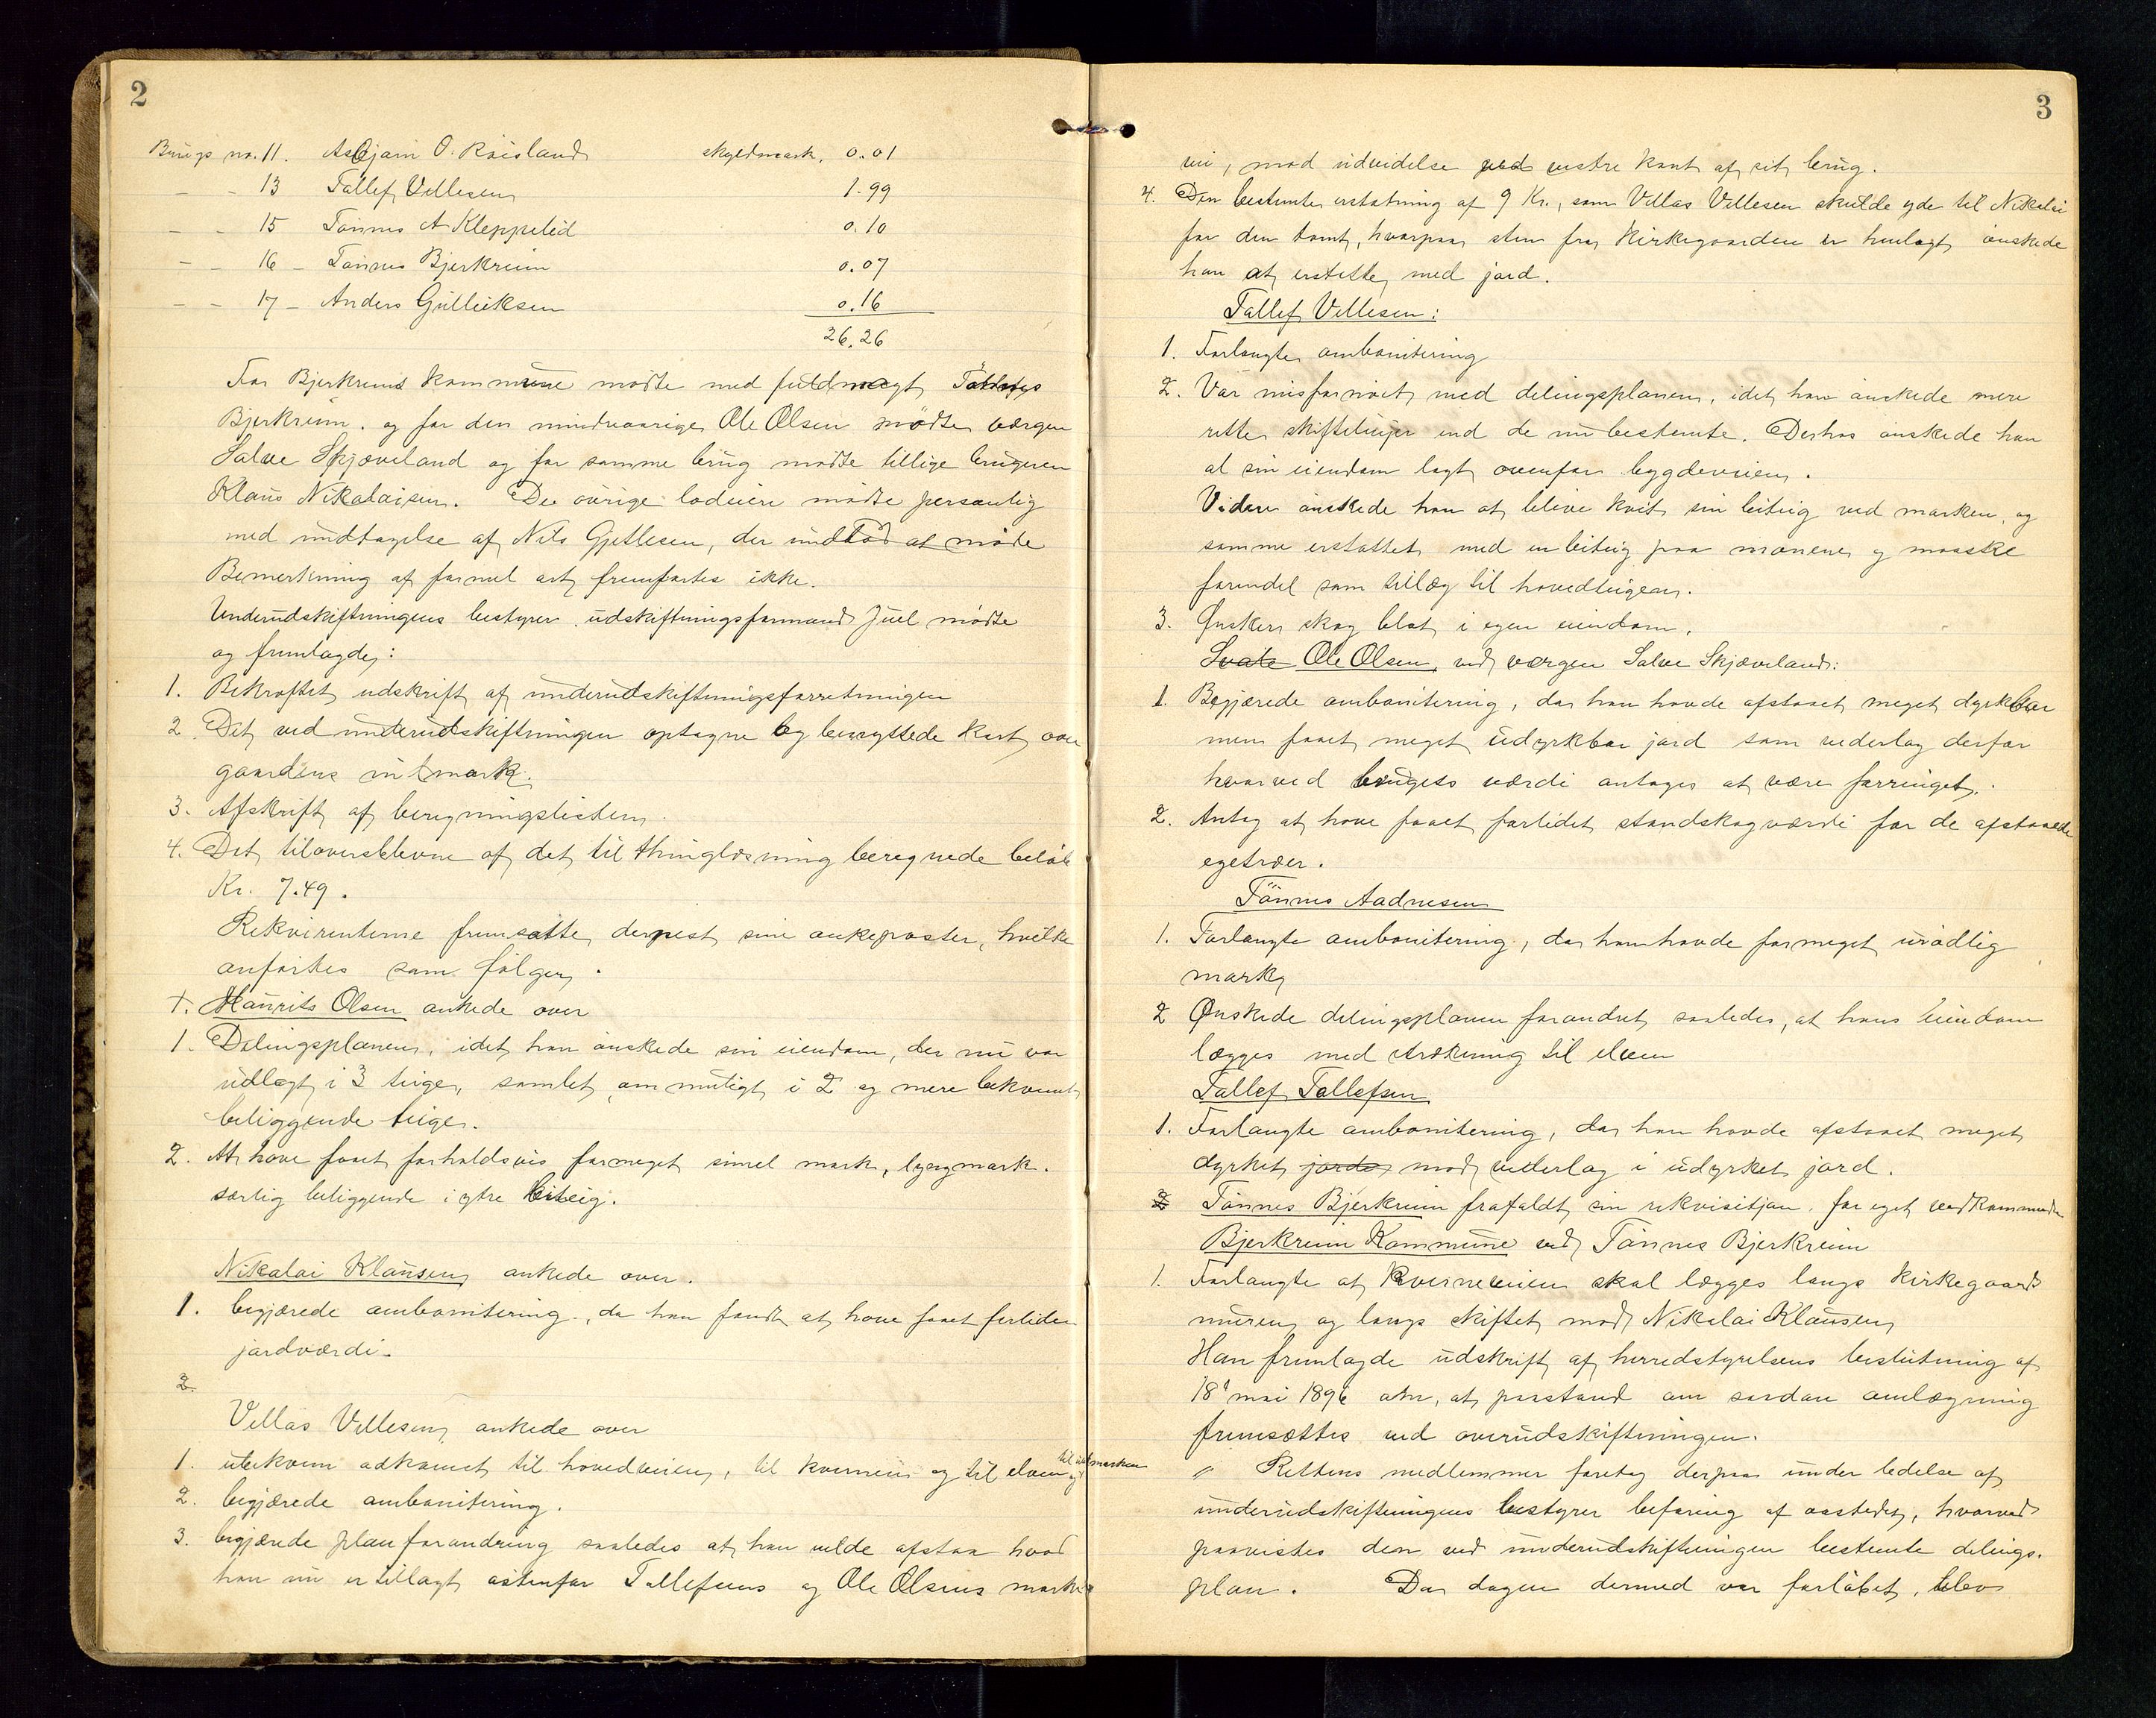 2
Brugs no. 11. Asbjørn O. Røisland skyldmark. 0.01
- - 13 Tallef Villesen 1.99
- - 15 Tønnes A Kleppelid 0.10
- - 16 - Tønnes Bjerkreim 0.07
- - 17 - Anders Gulleiksen 0.16
26.26
For Bjerkreims kommune mødte med fuldmagt Tønnes
Bjerkreim, og for den mindreaarige Ole Olsen mødte værgen
Salve Skjæveland og for samme brug mødte tillige brugeren
Klaus Nikolaisen. De øvrige lodeiere mødte personlig
med undtagelse af Nils Gjetlesen, der undlod at møde
Bemerkning af formel art fremførtes ikke.
Underudskiftningens bestyrer udskiftningsformand Juel mødte
og fremlagde:
1. Bekræftet udskrift af underudskiftningsforretningen
2 Det ved underudskiftningen optagne og benyttede kart over
gaardens indmark.
3. Afskrift af beregningslisten.
4. Det tiloversblevne af det til thinglæsning beregnede beløb
Kr. 7.49.
Rekvirenterne fremsatte dernest sine ankeposter, hvilke
anførtes som følger.
+. Maurits Olsen ankede over
1. Delingsplanen, idet han ønskede sin eiendom, der nu var
udlagt i 3 teiger, samlet om muligt i 2 og mere bekvemt
beliggende teiger.
2. At have faaet forholdsvis formeget simel mark, lyngmark.
særlig beliggende i ytre biteig.
Nikolai Klausen ankede over.
1. begjærede ombonitering, da han fandt at have faaet forliden
jordværdi.
2.
Villas Villesen ankede over
1. ubekvem adkomst til hovedveien, til kverneien og til elven og til udmarken
2. begjærede ombonitering.
3. begjærede planforandring saaledes at han vilde afstaa hvad
han nu er tillagt østenfor Tallefsens og Ole Olsens marke
3
vei, mod udvidelse ved vestre kant af sit brug.
4. Den bestemte erstatning af 9 Kr., som Villas Villesen skulde yde til Nikolai
for den tomt, hvorpaa sten fra Kirkegaarden er henlagt ønskede
han at erstatte med jord.
Tallef Villesen:
1. Forlangte ombonitering
2. Var misfornøiet med delingsplanen, idet han ønskede mere
rette skiftelinjer end de nu bestemte. Derhos ønskede han
al sin eiendom lagt ovenfor bygdeveien.
Videre ønskede han at blive kvit sin biteig ved marken, og
samme erstattet med en biteig paa moene og maaske
forendel som tillæg til hovedteigen.
3. Ønsker skog blot i egen eiendom.
Svale Ole Olsen ved værgen Salve Skjæveland:
1. Begjærede ombonitering, da han havde afstaaet meget dyrkbar
men faaet meget udyrkbar jord som vederlag derfor
hvorved brugets værdi antages at være forringet.
2. Antog at have faaet forlidet standskogværdi for de afstaaede
egetræer.
Tønnes Aadnesen
1. Forlangte ombonitering, da han havde formeget uvødlig
mark
2 Ønskede delingsplanen forandret saaledes, at hans eiendom
lægges med strækning til elven
Tallef Tallefsen
1. Forlangte ombonitering, da han havde afstaaet meget
dyrket jorde mod vederlag i udyrket jord.
2 Tønnes Bjerkreim frafaldt sin rekvisition for eget vedkommende
Bjerkreim Kommune ved Tønnes Bjerkreim
1. Forlangte at kverneveien skal lægges langs kirkegaards
muren og langs skiftet mod Nikolai Klausen
Han fremlagde udskrift af herredstyrelsens beslutning af
18' mai 1896 om, at paastand om saadan omlægning
fremsættes ved overudskiftningen.
" Rettens medlemmer foretog derpaa under ledelse af
underudskiftningens bestyrer befaring af aastedet, hvorved
paavistes den ved underudskiftningen bestemte delings-
plan. Da dagen dermed var forløbet, blev